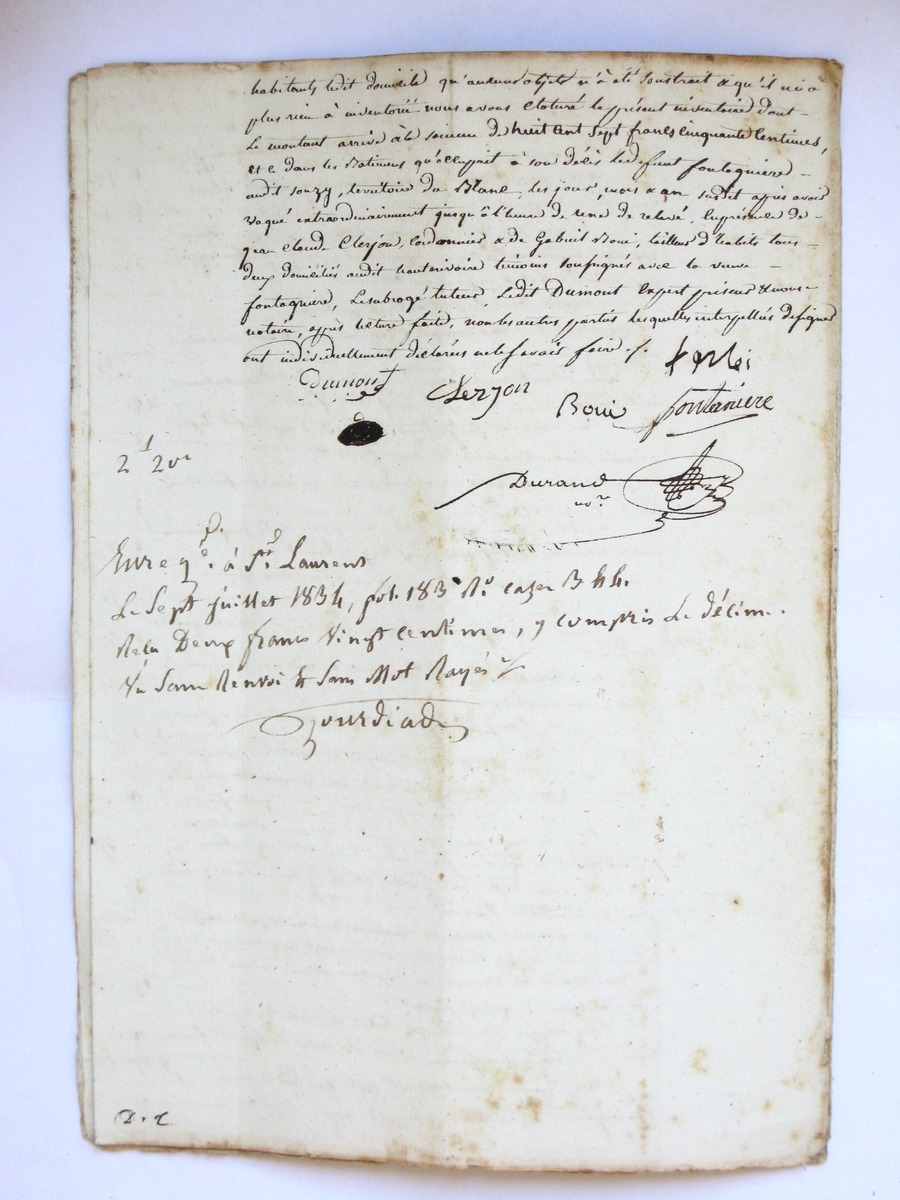 habitants ledit domicile qu'aucuns objets n'a été soustrait & qu'il n'i a
plus rien à inventorié nous avons cloturé le présent inventaire dont
Le montant arrive à la somme de huit cent sept francs cinquante Centimes,
et ce dans les Batimens qu'occupait à son décès ledefunt fontagniere
audit Souzy, territoire du Blanc, les jour, mois & an susdit après avoir
vaqué extraordinairement jusqu'à l'heure de une de relevé, En présence de
jean Claude Clerjon, Cordonnier & de Gabriel Boui, tailleur d'habits tous
deux domiciliés audit hauterivoire témoins soussignés avec la veuve
fontagniere, Le subrogé tuteur, Ledit Dumont Expert priseur & nous
notaire, après lecture faite, non les autres parties lesquelles interpellés de signer
ont individuellement déclarées ne le savoir faire ./.
Dumont Clerjon Boui fontaniere
2f 20c
Durand
no.re
Enreg.é à St. Laurent
Le Sept juillet 1834, fol. 183 Ro. cases 3 & 4.
Reçu Deux francs Vingt centimes, y compris Le décime.
Vu Sans Renvoi & Sans Mot Rayés
Gourdiad
D. C